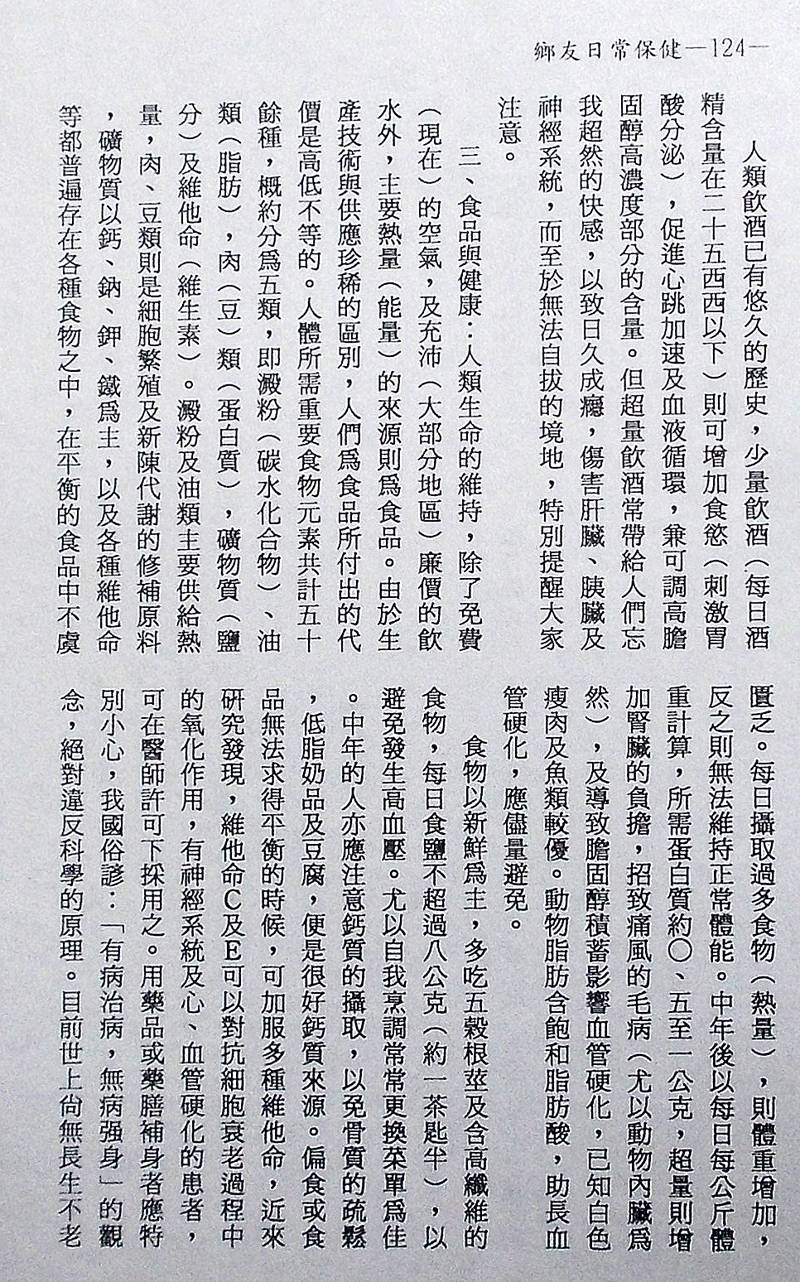 鄉友日常保健—124—
人類飲酒已有悠久的歷史，少量飲酒（每日酒
精含量在二十五西西以下）則可增加食慾（刺激胃
酸分泌），促進心跳加速及血液循環，兼可調高膽
固醇高濃度部分的含量。但超量飲酒常帶給人們忘
我超然的快感，以致日久成癮，傷害肝臟、胰臟及
神經系統，而至於無法自拔的境地，特別提醒大家
注意。
三、食品與健康：人類生命的維持，除了免費
（現在）的空氣，及充沛（大部分地區）廉價的飲
水外，主要熱量（能量）的來源則爲食品。由於生
產技術與供應珍稀的區別，人們爲食品所付出的代
價是高低不等的。人體所需重要食物元素共計五十
餘種，概約分爲五類，即澱粉（碳水化合物）、油
類（脂肪），肉（豆）類（蛋白質），礦物質（鹽
分）及維他命（維生素）。澱粉及油類主要供給熱
量，肉、豆類則是細胞繁殖及新陳代謝的修補原料
，礦物質以鈣、鈉、鉀、鐵爲主，以及各種維他命
等都普遍存在各種食物之中，在平衡的食品中不虞
匱乏。每日攝取過多食物（熱量），則體重增加，
反之則無法維持正常體能。中年後以每日每公斤體
重計算，所需蛋白質約〇、五至一公克，超量則增
加腎臟的負擔，招致痛風的毛病（尤以動物內臟爲
然），及導致膽固醇積蓄影響血管硬化，已知白色
瘦肉及魚類較優。動物脂肪含飽和脂肪酸，助長血
管硬化，應儘量避免。
食物以新鮮爲主，多吃五穀根莖及含高纖維的
食物，每日食鹽不超過八公克（約一茶匙半），以
避免發生高血壓。尤以自我烹調常常更換菜單爲佳
。中年的人亦應注意鈣質的攝取，以免骨質的疏鬆
，低脂奶品及豆腐，便是很好鈣質來源。偏食或食
品無法求得平衡的時候，可加服多種維他命，近來
研究發現，維他命C及E可以對抗細胞衰老過程中
的氧化作用，有神經系統及心、血管硬化的患者，
可在醫師許可下採用之。用藥品或藥膳補身者應特
別小心，我國俗諺：「有病治病，無病强身」的觀
念，絕對違反科學的原理。目前世上尙無長生不老